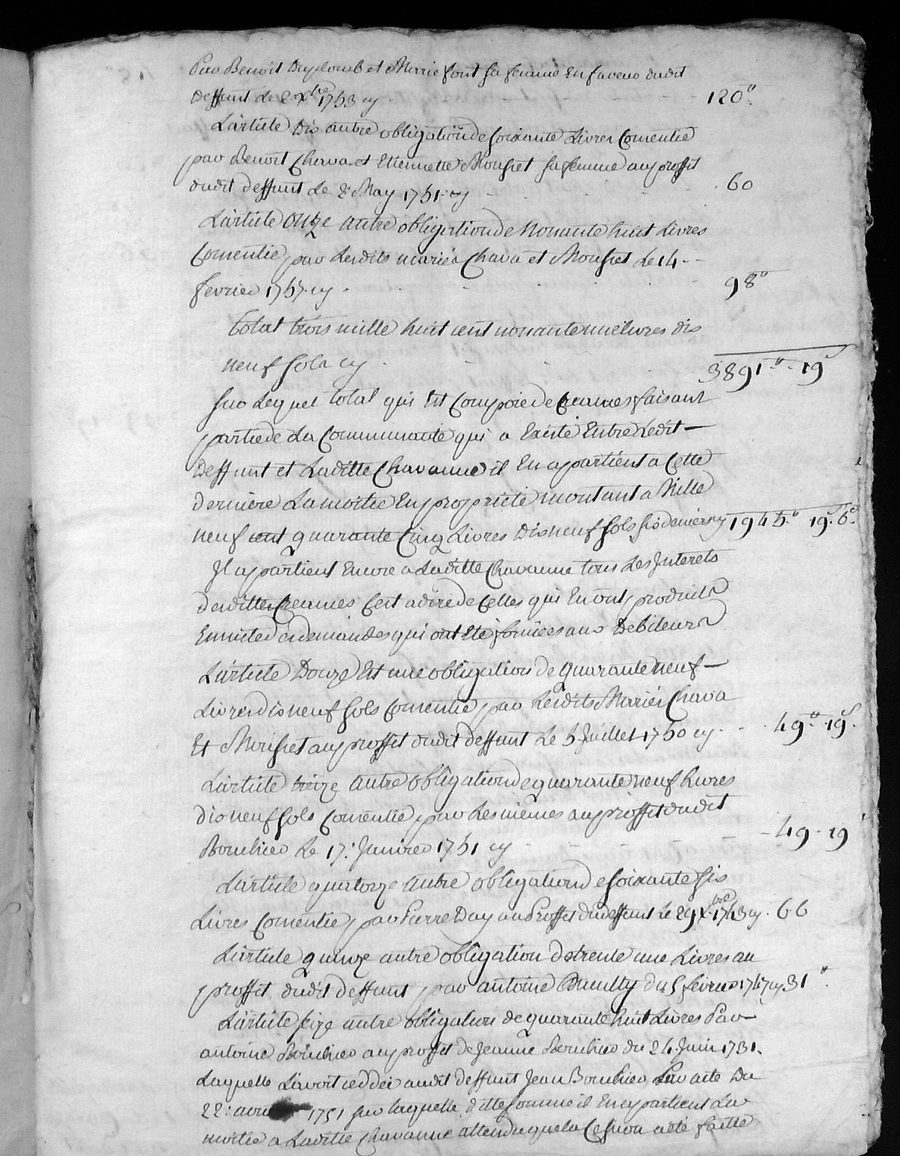 par Benoit Duplomb et Marie font sa femme En faveur dudit
Deffunt Le 2 xbre 1753 cy 120"
L'article Dix autre obligation de soixante Livres Consentie
par Benoit Chava et Etiennette Mousset sa femme au proffit
dudit deffunt Le 2 May 1751 cy 60
L'article Onze autre obligation de Nonante huit Livres
Consentie par Lesdits mariés Chava et Mousset Le 14
fevrier 1757 cy 98"
total trois mille huit cent nonante une Livres dix
neuf sols cy 3891" 19s
sur Lequel total qui Est Composé de Creances faisant
partie de La Communauté qui a Existé Entre Ledit
Deffunt et Laditte Chavanne il En apartient a Cette
derniere La moitié En proprieté montant a Mille
neuf cent quarante Cinq Livres Dix neuf sols six deniers cy 1945" 19s 6d
Il apartient Encore a Laditte Chavanne tous Les Interets
desdittes Creances C'est a dire de Celles qui En ont produits
Ensuite des demandes qui ont Eté formées aux Debiteurs
L'article Douze Est une obligation de quarante neuf
Livres dix neuf sols Consentie par Lesdits Mariés Chava
Et Mousset au proffit dudit deffunt Le 5 Juillet 1750 cy 49" 19s
L'article treize autre obligation de quarante neuf Livres
dix neuf sols Consentie par Les mêmes au proffit dudit
Bouchier Le 17 Janvier 1751 cy 49 19s
L'article quatorze autre obligation de soixante six
Livres Consentie par Pierre Day au Proffit du deffunt Le 29 xbre 1743 cy 66
L'article quinze autre obligation de trente une Livres au
proffit dudit deffunt par antoine du 5 fevrier 1747 cy 31"
L'article seize autre obligation de quarante huit Livres Par
antoine Bouchier au proffit de Jeanne Bouchier du 24 Juin 1731.
Laquelle L'avoit ceddée audit deffunt Jean Bouchier Par acte Du
22 avril 1751 sur laquelle ditte somme il En apartient La
moitié a Laditte Chavanne attendu que La Cession a été faitte